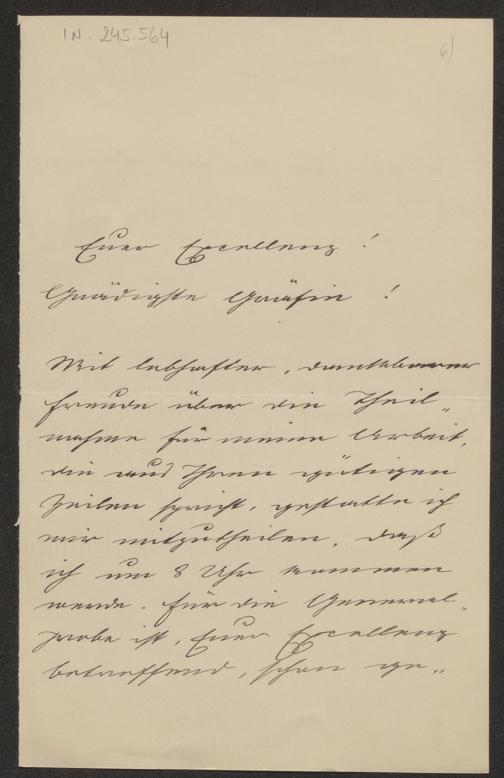 IN. 245.564
6)
Euer Excellenz!
Gnädigste Gräfin!
Mit lebhafter, dankbarer
Freude über die Theil„
nahme für meine Arbeit,
die aus Ihren gütigen
Zeilen spricht, gestatte ich
mir mitzutheilen, daß
ich um 8 Uhr kommen
werde. Für die General„
probe ist, Euer Excellenz
betreffend, schon ge„